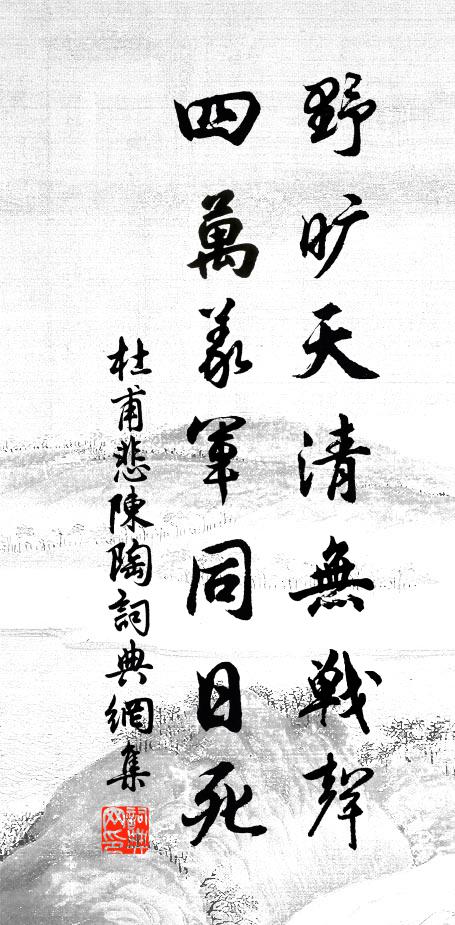 野旷天清無戦聲
四萬義軍同日死
杜甫悲陳陶詞典網集